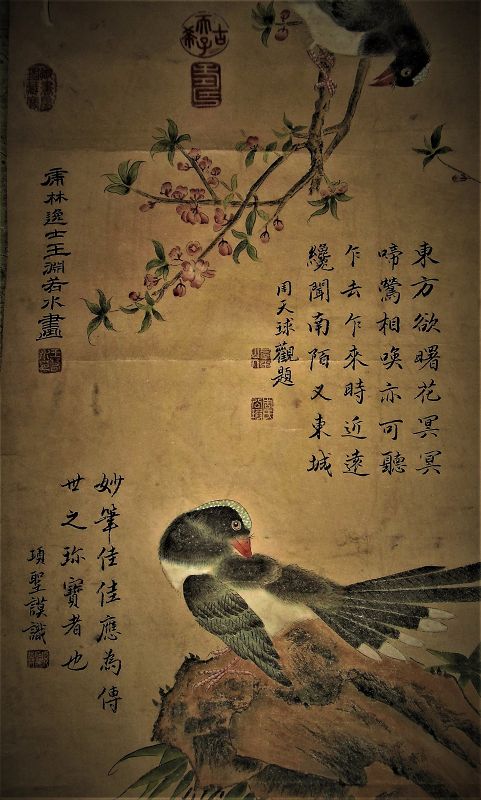 古希天子
東方欲曙花冥冥
啼鶯相喚亦可聽
乍去乍來時近遠
纔聞南陌又東城
用天球觀題
虎林逸士王淵若水畫
妙筆佳佳應為傳
世之珎寶者也
項聖謨識